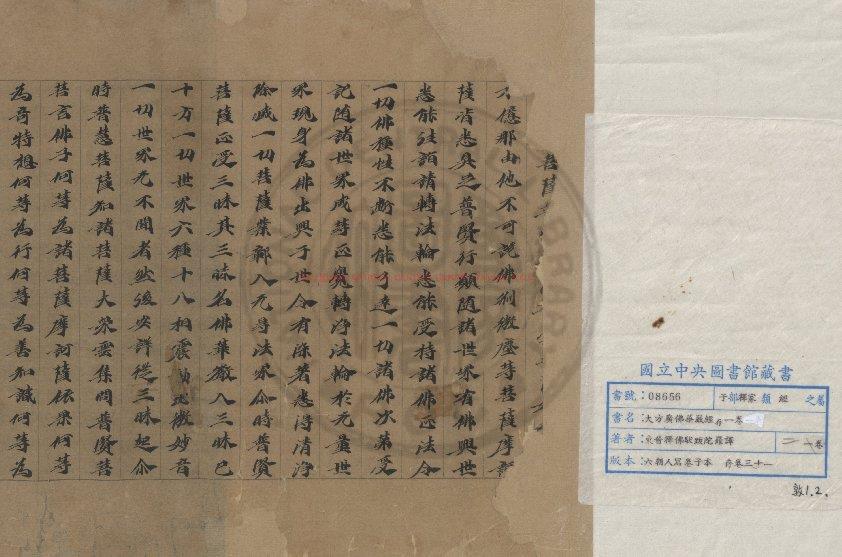 菩薩
億那由他不可說佛剎微塵等菩薩摩訶
薩皆悉具足普賢行願隨諸世界有佛興世
悉能往詣請轉法輪悉能受持諸佛正法令
一切佛種性不斷悉能了達一切諸佛次第受
記隨諸世界成等正覺轉淨法輪於无量世
界現身為佛出興于世令有染著悉得清淨
除滅一切菩薩業鄣入无㝵法界尒時普賢
菩薩正受三昧其三昧名佛華嚴入三昧已
十方一切世界六種十八相震動出微妙音
一切世界无不聞者然後安詳從三昧起尒
時普慧菩薩知諸菩薩大眾雲集問普賢菩
薩言佛子何等為諸菩薩摩訶薩依果何等
為奇特想何等為行何等為善知識何等為
國立中央圖書館藏書
書號：08656 子部釋家類 經 之屬
書名：大方廣佛華嚴經存一卷
著者：東晉釋佛馱跋陀羅譯 一卷
版本：六朝人寫卷子本 存卷三十一
敦1.2.